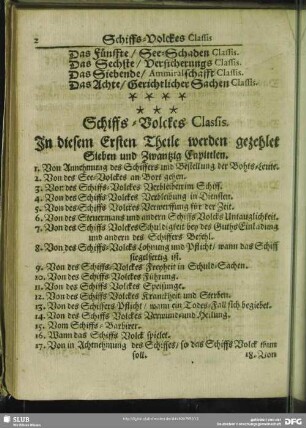 2 Schiffs-Volckes Classis
Das Fünffte / See-Schaden Classis.
Das Sechste / Versicherungs Classis.
Das Siebende / Ammiralschafft Classis.
Das Achte / Gerichtlicher Sachen Classis.
* * * *
* * *
Schiffs-Volckes Classis.
In diesem Ersten Theile werden gezehlet
Sieben und Zwantzig Capittelen.
1. Von Annehmung des Schiffers und Bestellung der Bohts-Leute.
2. Von des See-Volckes an Bort gehen.
3. Von des Schiffs-Volckes Verbleiben im Schiff.
4. Von des Schiffs-Volckes Verbleibung in Diensten.
5. Von des Schiffs-Volckes Verwerffung für der Zeit.
6. Von des Steuermans und andern Schiffs-Volcks Untauglichkeit.
7. Von des Schiffs-Volckes Schuldigkeit bey des Guths Einladung
und andern des Schiffers Befehl.
8. Von des Schiffs-Volckes Lohnung und Pflicht / wann das Schiff
siegelfertig ist.
9. Von des Schiffs-Volckes Freyheit in Schuld-Sachen.
10. Von des Schiffs-Volckes Führung.
11. Von des Schiffs-Volckes Speisunge.
12. Von des Schiffs-Volckes Kranckheit und Sterben.
13. Von des Schiffers Pflicht / wann ein Todes-Fall sich begiebet.
14. Von des Schiffs-Volckes Verwund- und Heilung.
15. Vom Schiffs-Barbirer.
16. Wann das Schiffs Volck spielet.
17. Von in Achtnehmung des Schiffes / so das Schiffs Volck thun
soll. 18. Von
SLUB